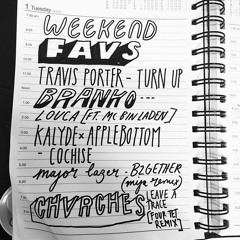 1 Tuesday
WEEKEND
FAVS
TRAVIS PORTER - TURN UP
BRANKO ---
LOUCA [FT. MC BIN LADEN]
KALYDE × APPLEBOTTOM
- COCHISE
major lazer - B2GETHER
(mija remix)
CHVRCHES
LEAVE A
TRACE
[FOUR TET
REMIX]